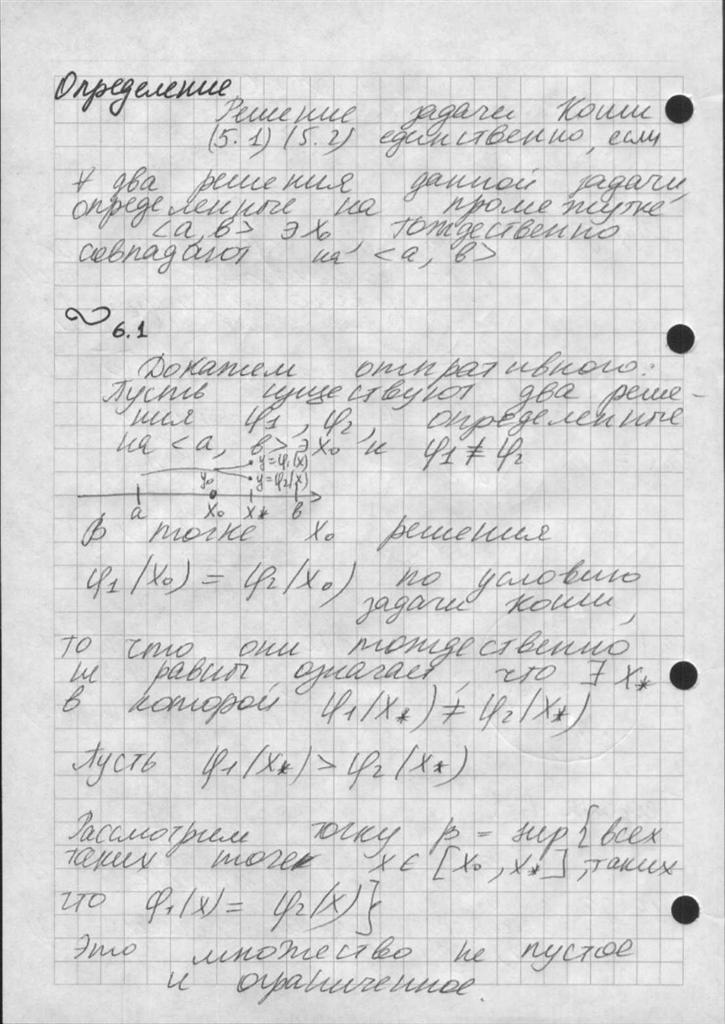 Определение
Решение задачи Коши
(5.1) (5.2) единственно, если
∀ два решения данной задачи,
определенные на промежутке
<a, b> ∋ x₀, тождественно
совпадают на <a, b>
6.1
Докажем от пративного:
Пусть существуют два реше-
ния φ₁, φ₂, определенные
на <a, b> ∋ x₀ и φ₁ ≢ φ₂
y=φ₁(x)
y₀ y=φ₂(x)
a x₀ x* b
В точке x₀ решения
φ₁(x₀) = φ₂(x₀) по условию
задачи Коши,
то что они тождественно
не равны, означает, что ∃ x*
в которой φ₁(x*) ≠ φ₂(x*)
Пусть φ₁(x*) > φ₂(x*)
Рассмотрим точку β = sup { всех
таких точек x ∈ [x₀, x*], таких
что φ₁(x) = φ₂(x)}
Это множество не пустое
и ограниченное.